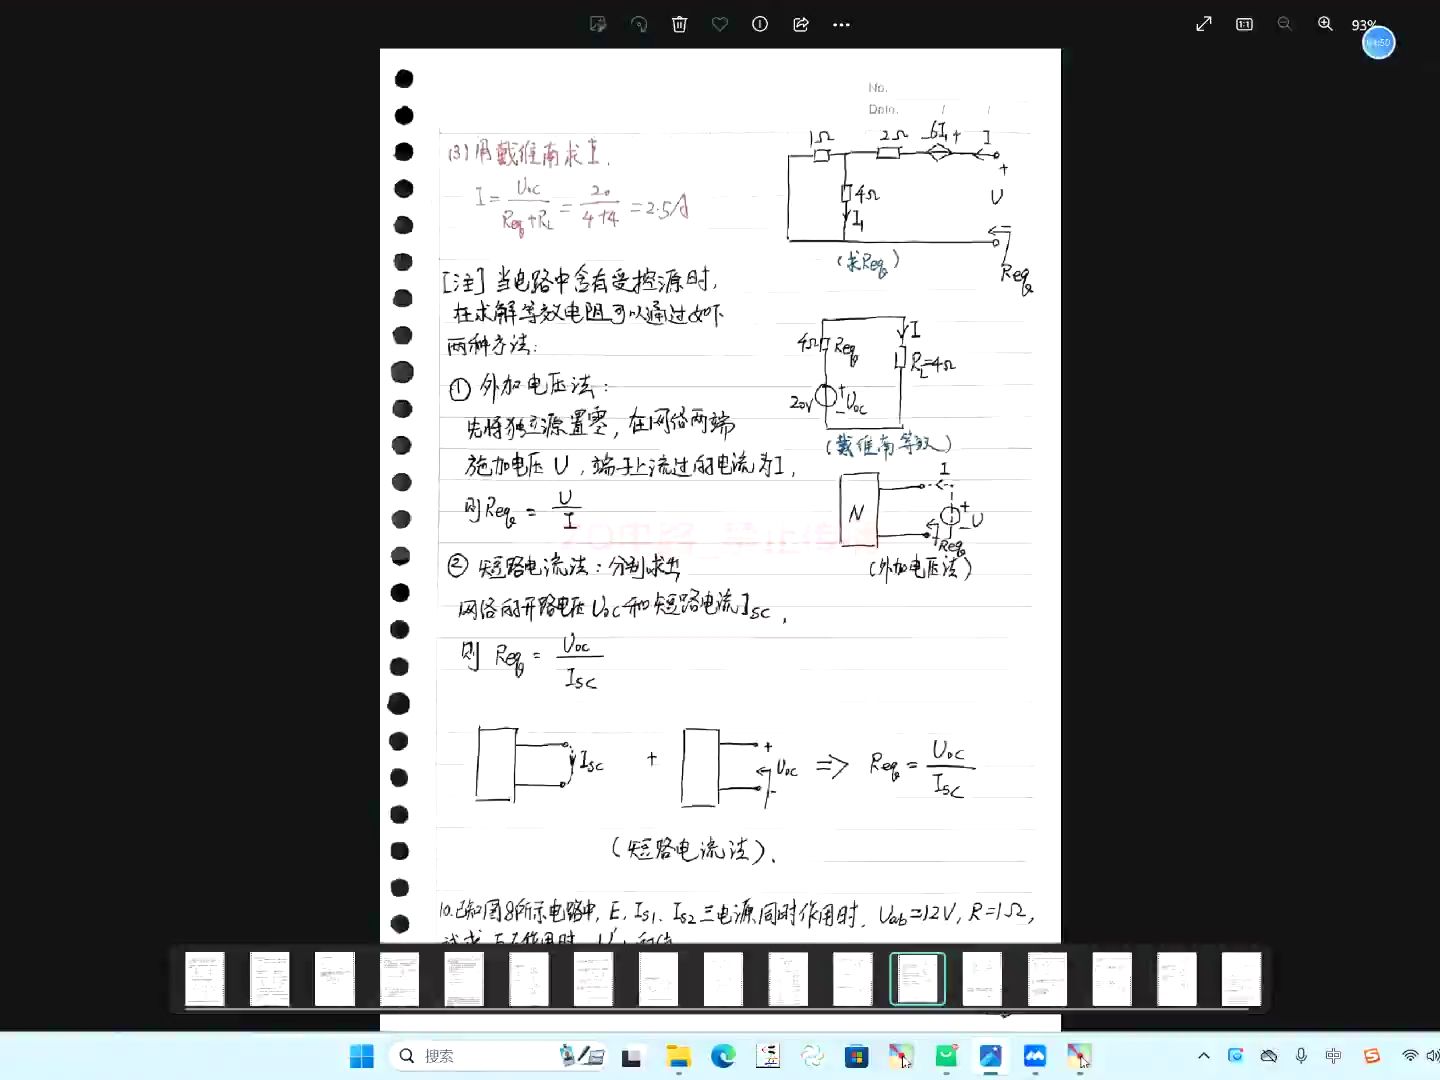 93%
No.
Date. / /
(3)用戴维南求I.
I = Uoc / (Req+RL) = 20 / (4+4) = 2.5A
1Ω 2Ω -6I₁+ I
+
4Ω
U
I₁
(求Req)
Req
[注] 当电路中含有受控源时,
在求解等效电阻可以通过如下
两种方法:
I
4Ω Req
RL=4Ω
20V + - Uoc
(戴维南等效)
① 外加电压法:
先将独立源置零, 在网络两端
施加电压 U, 端子上流过的电流为I,
则Req = U / I
I
N
+ - U
Req
(外加电压法)
② 短路电流法: 分别求出
网络的开路电压Uoc和短路电流Isc,
则 Req = Uoc / Isc
Isc + + Uoc - ⇒ Req = Uoc / Isc
(短路电流法).
10.已知图8所示电路中, E, Is1, Is2 三电源同时作用时, Uab=12V, R=1Ω,
搜索
中